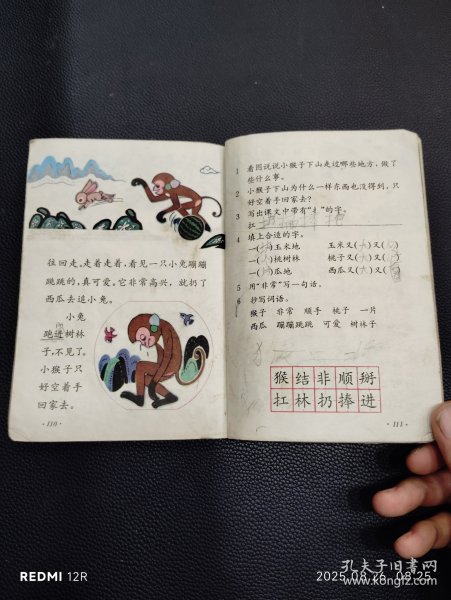 往回走。走着走着，看见一只小兔蹦蹦
跳跳的，真可爱。它非常高兴，就扔了
西瓜去追小兔。
小兔
跑进树林
子，不见了。
小猴子只
好空着手
回家去。
·110·
1 看图说说小猴子下山走过哪些地方，做了
些什么事。
2 小猴子下山为什么一样东西也没得到，只
好空着手回家去？
3 写出课文中带有“扌”的字。
扛
4 填上合适的字。
一( )玉米地 玉米又(大)又( )
一( )桃树林 桃子又(大)又( )
一( )瓜地 西瓜又(大)又( )
5 用“非常”写一句话。
6 抄写词语。
猴子 非常 顺手 桃子 一片
西瓜 蹦蹦跳跳 可爱 树林子
猴 结 非 顺 掰
扛 林 扔 捧 进
·111·
REDMI 12R
2025.08.26 09:25
孔夫子旧书网
www.kongfz.com